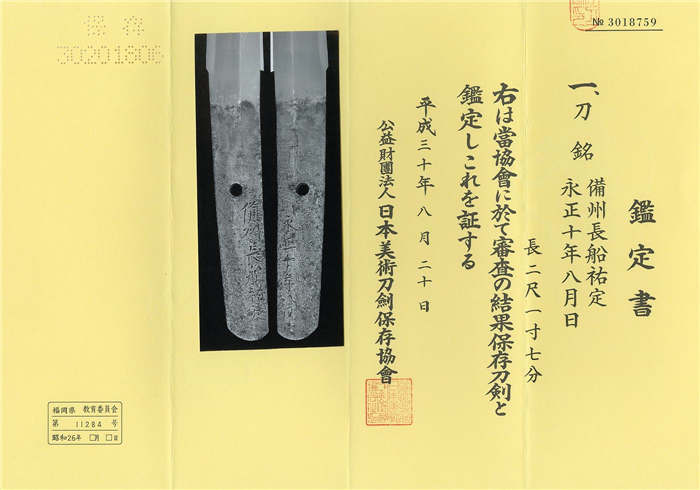 № 3018759
鑑定書
一、刀 銘 備州長船祐定
永正十年八月日
長二尺一寸七分
右は當協會に於て審査の結果保存刀剣と
鑑定しこれを証する
平成三十年八月二十日
公益財團法人 日本美術刀剣保存協會
保存
30201806
福岡県 教育委員会
第 11284 号
昭和26年 □月 □日